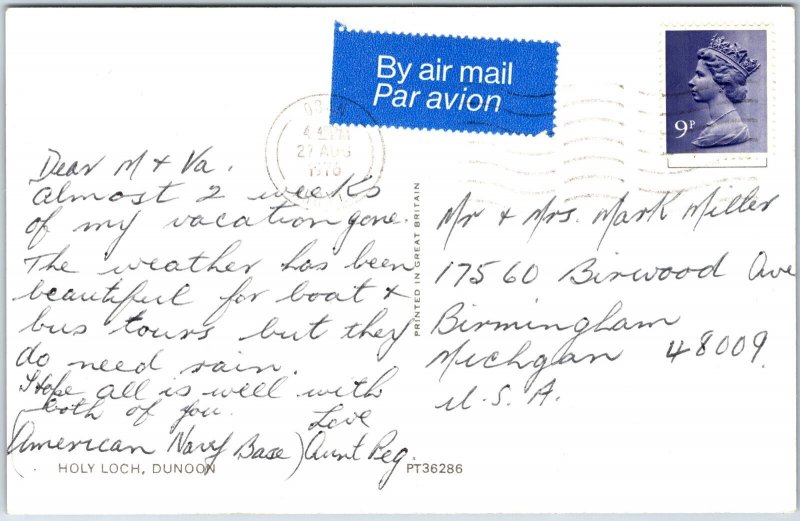 By air mail
Par avion
9P
27 AUG
1976
Dear M & Va.
almost 2 weeks
of my vacation gone.
The weather has been
beautiful for boat &
bus tours but they
do need rain.
I hope all is well with
both of you.
Love
Aunt Peg.
(American Navy Base)
HOLY LOCH, DUNOON
PT36286
PRINTED IN GREAT BRITAIN
Mr & Mrs. Mark Miller
17560 Birwood Ave
Birmingham
Michgan 48009.
U.S.A.